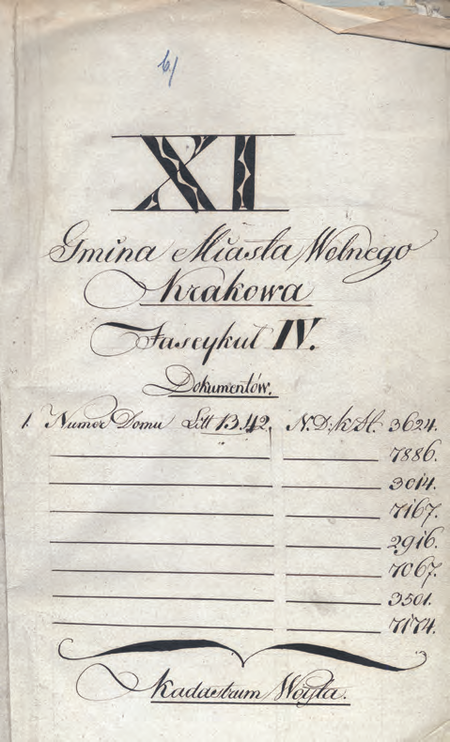 6/
XI
Gmina Miasta Wolnego
Krakowa
Fascykuł IV.
Dokumentów.
1. Numer Domu Litt 13.42. N. D: k H. 3624.
7886.
3014.
7167.
2916.
7067.
3501.
7174.
Kadastrum Woyta.